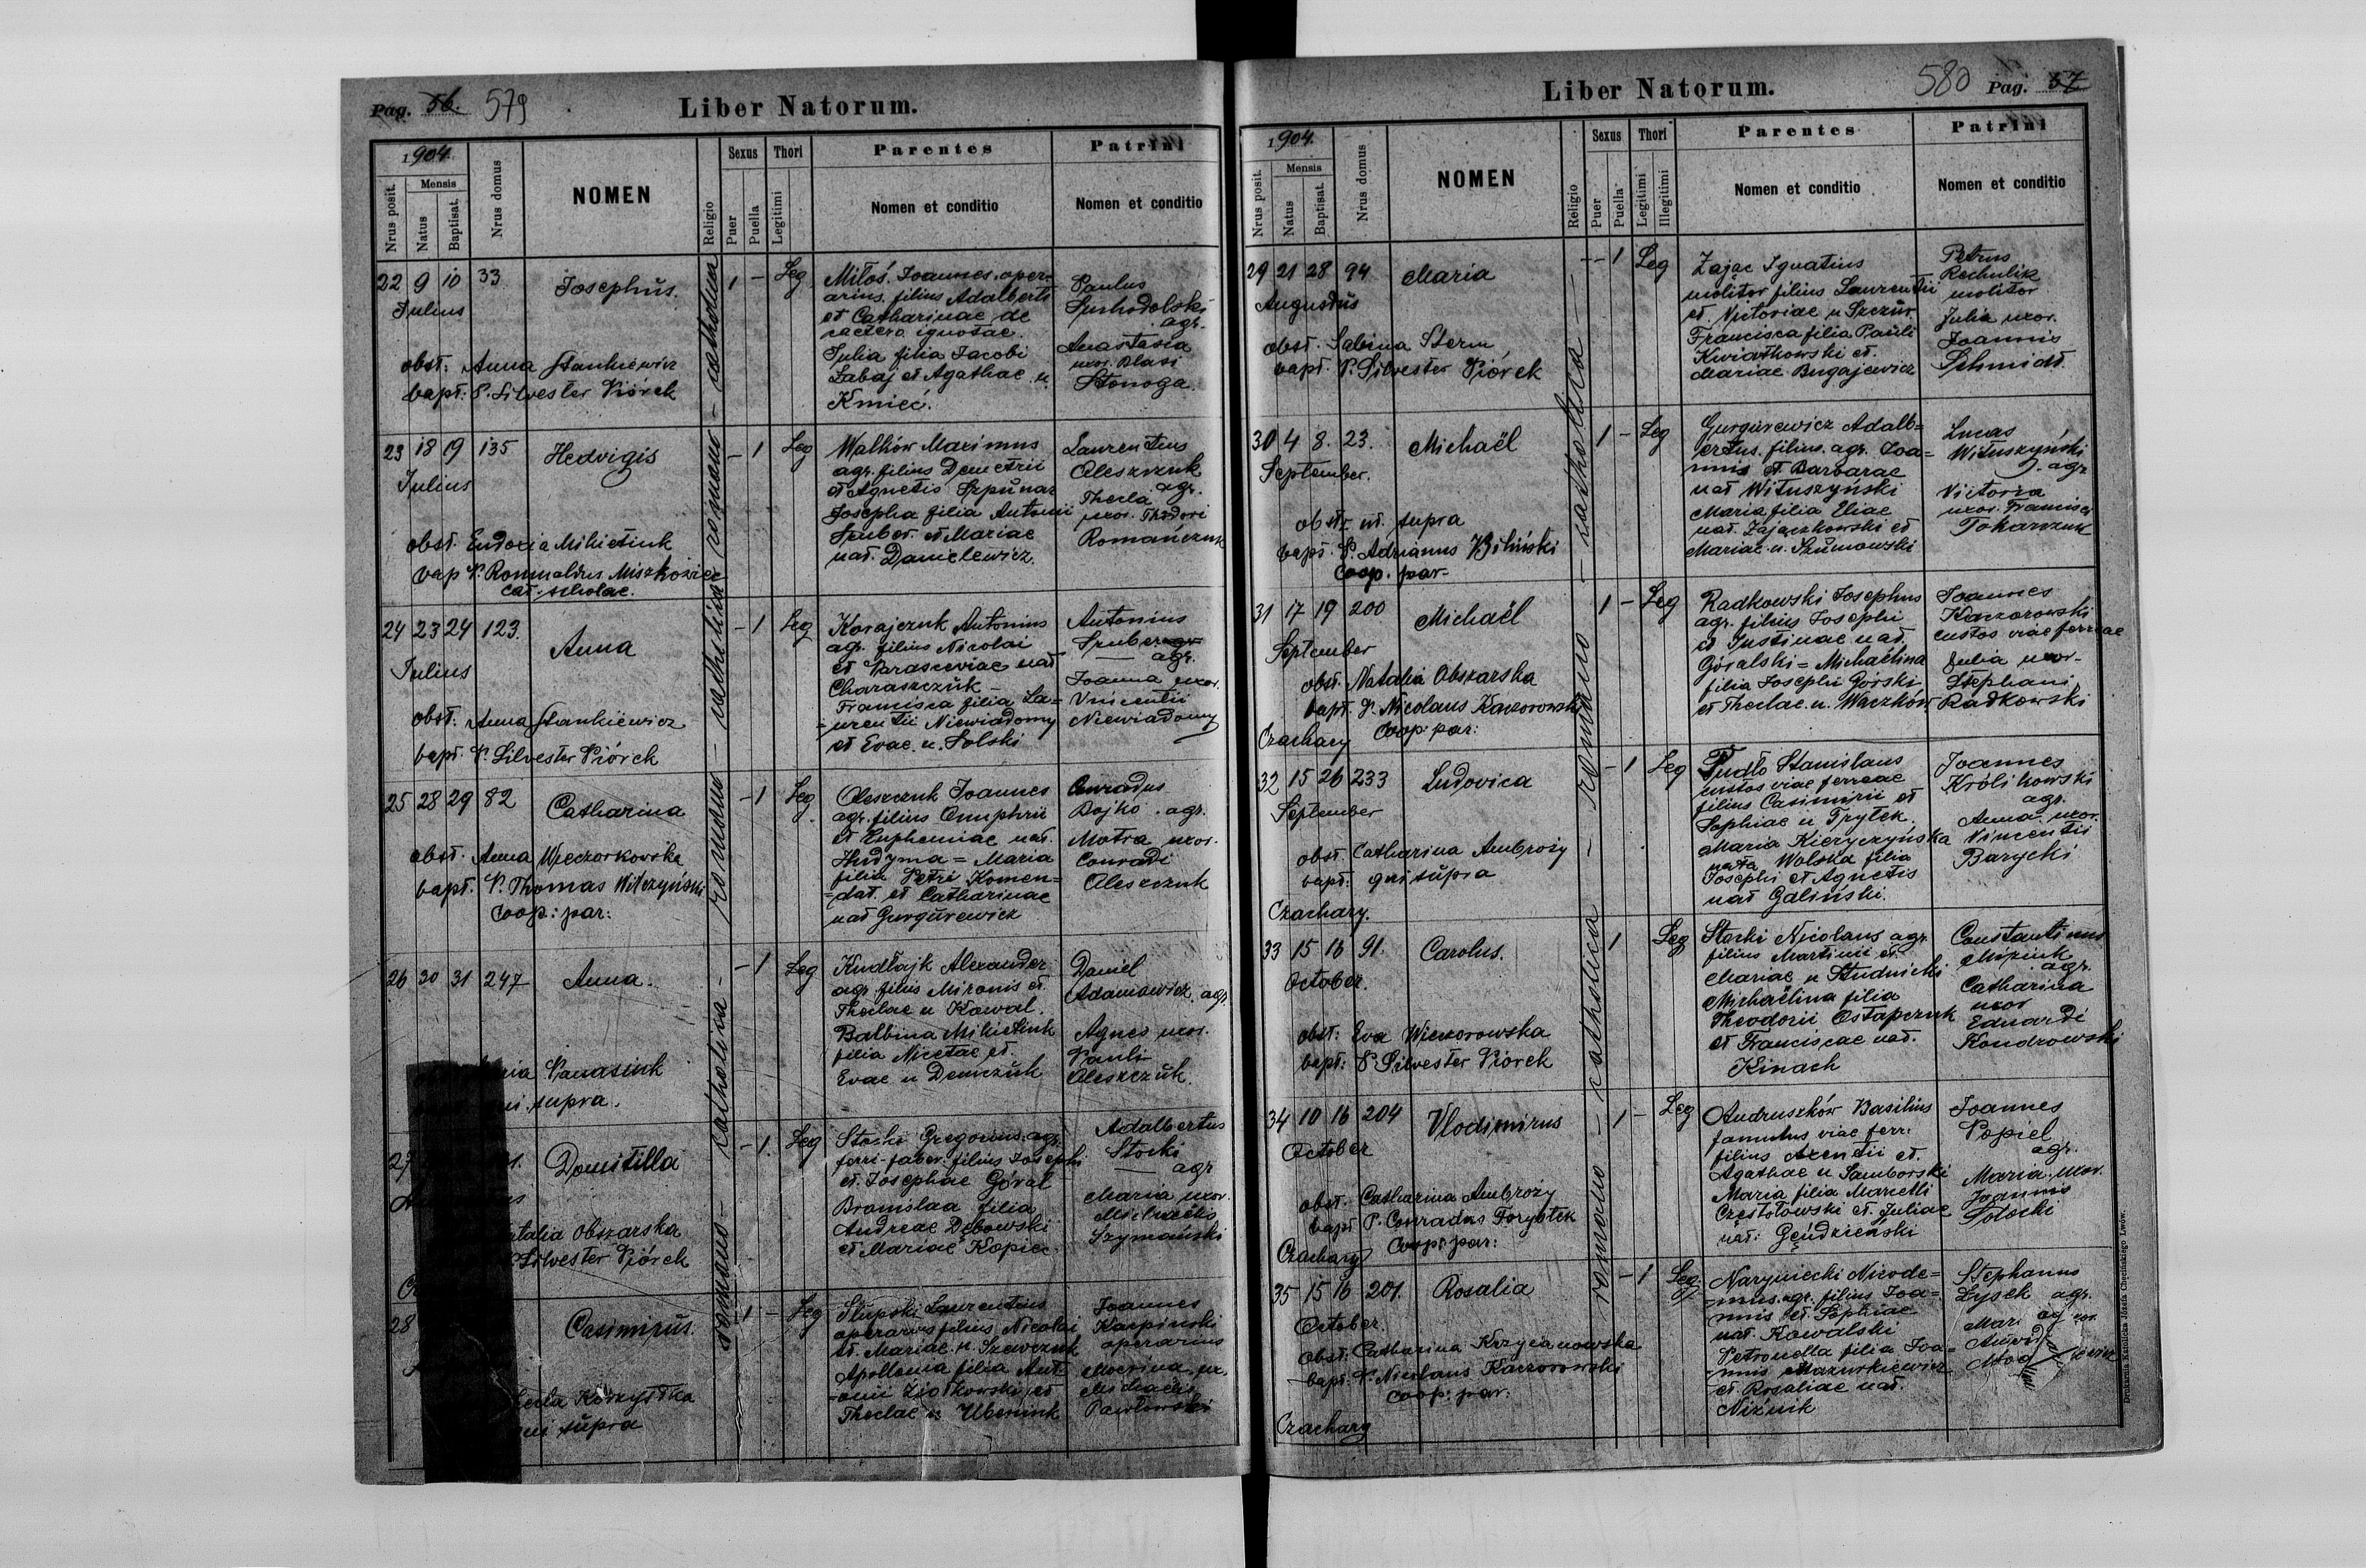 Pag. 56. 579
Liber Natorum.
1904.
Nrus posit.
Mensis
Natus
Baptisat.
Nrus domus
NOMEN
Religio
Sexus
Puer
Puella
Thori
Legitimi
Parentes
Nomen et conditio
Patrini
Nomen et conditio
romano - catholica - romano - catholica romano - catholica
22 9 10 33 Josephus. 1 - Leg
Julius
obst: Anna Stankiewicz
bapt: P. Silvester Piórek
Miłoś Joannes oper=
arius filius Adalberti
et Catharinae de
caetero ignotae
Julia filia Jacobi
Łabaj et Agathae n.
Kmieć.
Paulus
Suchodolski
agr.
Anastasia
uxor. Blasi
Stonoga
23 18 19 135 Hedvigis - 1 Leg
Julius
obst. Eudoxia Mikietiuk
bap P. Romualdus Miszkowicz
cat. scholae.
Walków Maximus
agr. filius Demetrii
et Agnetis Szpunar
Josepha filia Antonii
Szuber et Mariae
nat. Danielewicz.
Laurentius
Oleszczuk
agr.
Thecla
uxor. Thodori
Romańczuk
24 23 24 123. Anna - 1 Leg
Julius
obst: Anna Stankiewicz
bapt. P. Silvester Piórek
Korajczuk Antonius
agr. filius Nicolai
et Parasceviae nat
Charaszczuk -
Francisca filia La=
=urentii Niewiadomy
et Evae n. Solski
Antonius
Szuber agr
agr.
Joanna uxor.
Vincentii
Niewiadomy
25 28 29 82 Catharina - 1 Leg
obst. Anna Wieczorkowska
bapt. P. Thomas Wilczyński
coop: par:
Oleszczuk Joannes
agr. filius Onuphrii
et Euphemiae nat.
Hudyma = Maria
filia Petri Komen=
=dat. et Catharinae
nat Gurgurewicz
Conradus
Bojko . agr.
Motra uxor.
Conradi
Oleszczuk
26 30 31 247 Anna. - 1 Leg
ria Panasiuk
ui supra.
Kudłajk Alexander
agr. filius Mironis et
Theclae n Kowal.
Balbina Mikietiuk
filia Nicetae et
Evae n Demczuk
Daniel
Adamowicz agr.
Agnes uxor.
Pauli
Oleszczuk.
27 1. Domitilla - 1. Leg
atalia Obszarska
Silvester Piórek
Stocki Gregorius agr.
ferri-faber. filius Josephi
et Josephae Góral
Bronislaa filia
Andreae Dębowski
et Mariae Kopiec
Adalbertus
Stocki
agr
Maria uxor.
Michaelis
Szymański
28 Casimirus. 1 - Leg
ecla Korzystka
ui supra
Słupski Laurentius
operarius filius Nicolai
et Mariae n. Szewczuk
Apollonia filia Ant=
=onii Ziółkowski et
Theclae n
Joannes
Karpinski
operarius
ux.
Michaelis
Pawłowski
Liber Natorum.
580 Pag. 57
1904.
Nrus posit.
Mensis
Natus
Baptisat.
Nrus domus
NOMEN
Religio
Sexus
Puer
Puella
Thori
Legitimi
Illegitimi
Parentes
Nomen et conditio
Patrini
Nomen et conditio
romano - catholica - romano - catholica -
29 21 28 94 Maria - 1 Leg
Augustus
obst. Sabina Sterm
bapt. P. Silvester Piórek
Zając Ignatius
molitor filius Laurentii
et Victoriae n Szczur
Francisca filia Pauli
Kwiatkowski et.
Mariae Bugajewicz
Petrus
Rechulik
molitor
Julia uxor.
Joannis
Schmidt.
30 4 8. 23. Michaël 1 - Leg
September.
obstr. ut. supra
bapt. P. Adrianus Biliński
coop. par-
Gurgurewicz Adalb=
ertus. filius agr. Joa=
nnis et Barbarae
nat Wituszyński
Maria filia Eliae
nat. Zajączkowski et
Mariae n. Szumowski
Lucas
Wituszyński
agr
Victoria
uxor. Francisci
Tokarczuk
31 17 19 200 Michaël 1 - Leg
September
obst. Natalia Obszarska
bapt. P. Nicolaus Kaczorowski
coop: par:
Czachary
Radkowski Josephus
agr. filius Josephi
et Justinae nat.
Góralski = Michaëlina
filia Josephi Górski
et Theclae n. Waczków
Joannes
Kaczorowski
custos viae ferreae
Julia uxor-
Stephani
Radkowski
32 15 26 233 Ludovica - 1 Leg
September
obst. Catharina Ambroży
bapt: qui supra
Czachary.
Pudło Stanislaus
custos viae ferreae
filius Casimirii et
Sophiae n Trytek.
Maria Kieryczyńska
nata Wolska filia
Josephi et Agnetis
nat Galiński.
Joannes
Królikowski
agr.
Anna uxor.
Vincentii
Barycki
33 15 16 91. Carolus. 1 Leg
October.
obst: Eva Wieczorowska
bapt: P Silvester Piórek
Stocki Nicolaus agr.
filius Martinii et
Mariae n Studnicki
Michaëlina filia
Theodorii Ostapczuk
et Franciscae nat.
Kinach
Constantinus
agr.
Catharina
uxor
Eduardi
Kondrowski
34 10 16 204 Vlodimirus 1 - Leg
October
obst. Catharina Ambroży
bapt P. Conradus Forystek
Coop: par:
Czachary
Andruszków Basilius
famulus viae ferr:
filius Axentii et.
Agathae n Samborski
Maria filia Marcelli
Częstołowski et. Juliae
nat: Gendzieński
Joannes
Popiel
agr.
Maria uxor.
Joannis
Sołocki
35 15 16 201. Rosalia - 1 Leg.
October.
Obst: Catharina Krzyżanowska
bapt. P. Nicolaus Kaczorowski
coop: par:
Czachary
Naryniecki Nicode=
=mus. agr. filius Joa=
nnis et Sophiae
nat. Kowalski
Petronella filia Joa=
=nnis Mazurkiewicz
et Rosaliae nat.
Niżnik
Stephanus
Łysek agr.
Drukarnia Katolicka Józefa Chęcińskiego Lwów.